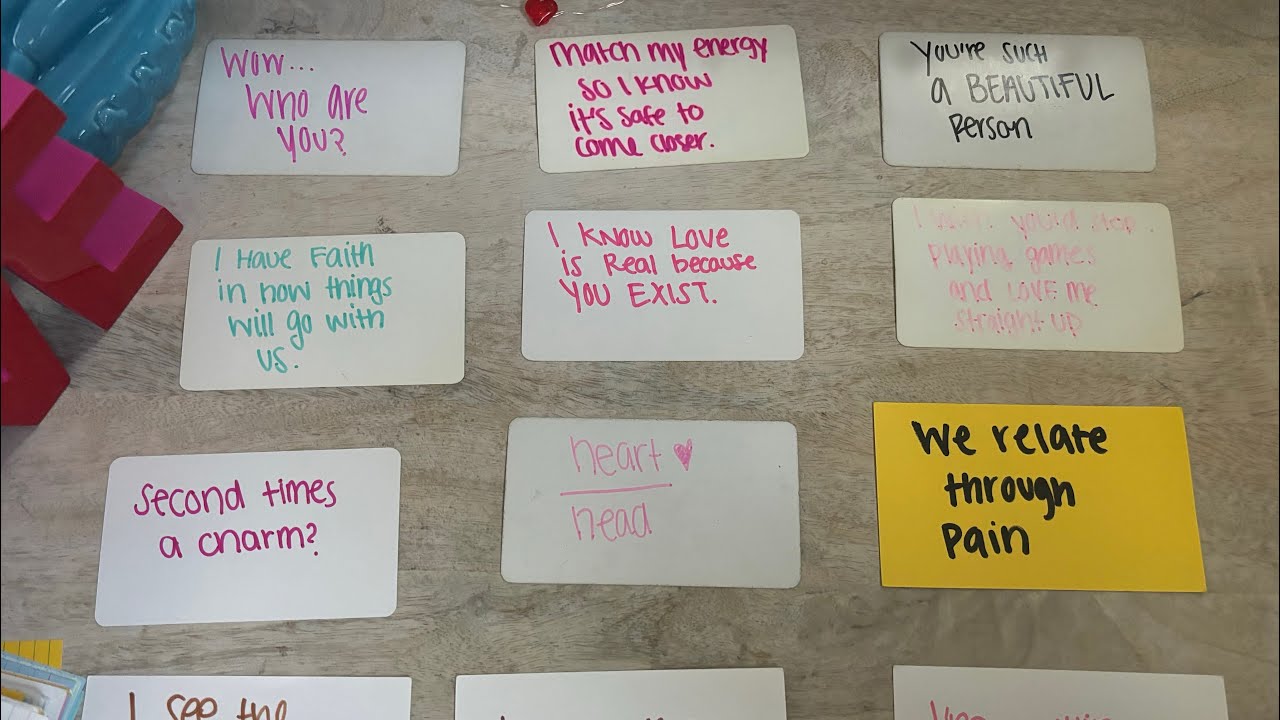 Wow...
Who are
you?
Match my energy
so I know
it's safe to
come closer.
You're such
a BEAUTIFUL
Person
I Have Faith
in how things
will go with
us.
I KNOW LOVE
is Real because
YOU EXIST.
I wish you'd stop
playing games
and LOVE me
straight up
Second times
a charm?
heart ♥
head
We relate
through
Pain
I see the